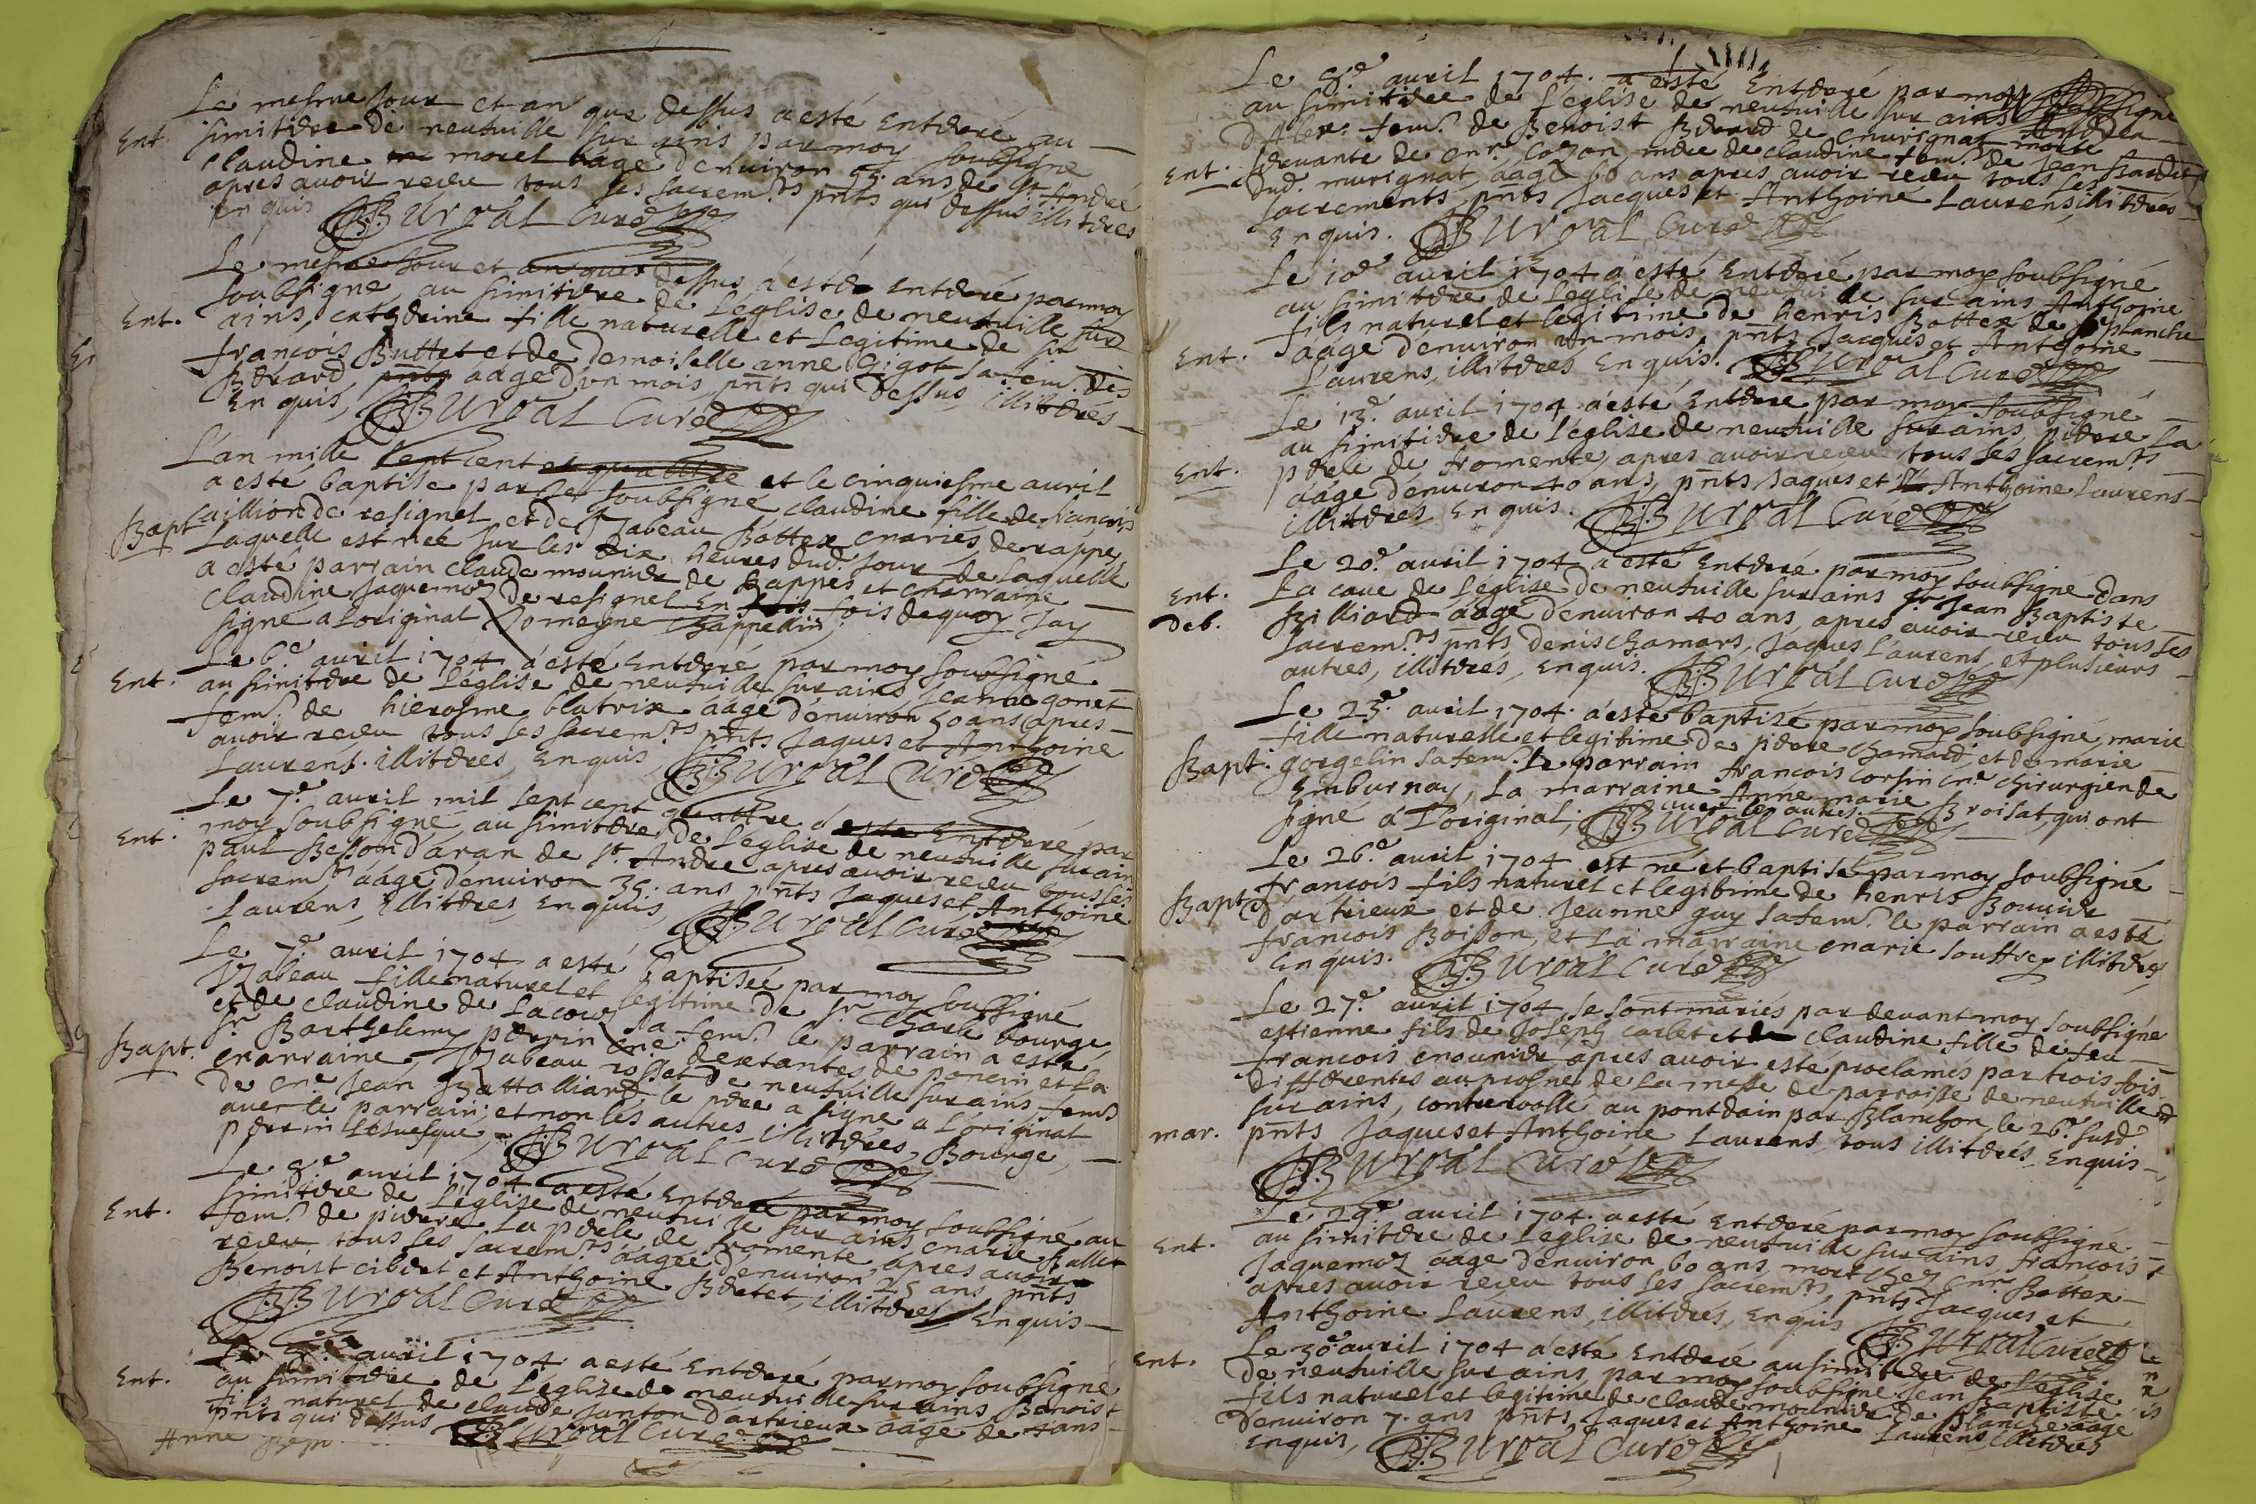 Le mesme Jour et an que dessus a esté Entderé au
Ent. simitidre de neufuille sur ains par moy soubsigné
claudine morel aage denuiron 55. ans de St André
apres auoir receu tous ses sacremts pnts qui dessus illitdrés
en quis JBurgal Curé
Le mesme Jour et an que dessus a esté Entderé par moy
soubsigné, au simitidre de L'église de neufuille sur
Ent. ains, cathdrine fille naturelle et Legitime de sr
françois Buttet et de demoiselle anne Gigot sa fem. de
Bdrard aage d'vn mois, pnts qui dessus, illitdrés
En quis, JBurgal Curé
L'an mille sept cent et quattre et le cinquiesme auril
a esté baptisé par le soubsigné, claudine fille de françois
Bapt caillion de resignel et de Jsabeau Bottex mariés de rappe,
Laquelle est née sur les dix heures dud. Jour de Laquelle
a esté parrain claude mounidr de Rappes et marraine
claudine Jaquemoz de resignel En fois dequoy Jay
signé a Loriginal Chappellin
Le 6e auril 1704 a esté Entderé par moy soubsigné
Ent. au simitdre de L'église de neufuille sur ains Jeanne gonet
fem. de hierosme blatrix aagé d'enuiron 50 ans apres
auoir receu tous ses sacremts pnts Jaques et Anthoine
Laurens. illitdrés, Enquis, JBurgal Curé
Le 7e auril mil sept cent quattre a esté Entderé par
Ent. moy soubsigné, au simitdre, de L'église de neufuille sur ains
paul Besson d'aran de St. André apres auoir receu tous ses
sacremts aagé d'enuiron 35. ans pnts Jaques et Anthoine
Laurens, illitdrés, Enquis, JBurgal Curé
Le 7e auril 1704 a esté baptisée par moy soubsigné
Jzabeau fille naturel et legitime de sr Charle bourge
et de claudine de Lacour sa fem. le parrain a esté
Bapt. sr Barthelemy pdrrin de ponein et La
marraine Jzabeau de neufuille sur ains fem.
de mre Jean Battalliard, le pdre a signé a L'original
auec le parrain, et non les autres illitdrés, Bourge,
pdrrin JBurgal Curé
Le 8e auril 1704 a esté Entderé par moy soubsigné au
simitdre de L'église de neufuille sur ains marie
Ent. fem. de pidrre La pdrle de fromente, apres auoir
receu tous ses sacremts aagée denuiron 25 ans, pnts
Benoist cibdet et Anthoine Bdrtet, illitdrés Enquis
JBurgal Curé
Le auril 1704 a esté Entderé par moy soubsigné
Ent. au simitidre de L'église de neufuille sur ains Benoist
fils naturel de claude Janton d'artrieux aagé de ans
pnts qui dessus JBurgal Curé
Anne
Le 8e auril 1704. a esté Entderé par moy soubsigné
au simitidre de L'église de neufuille sur ains
fem. de Benoist Bdrard de
Ent. sdruante de mr. Cozon, mdre de claudine fem. de Jean
dud. murignat, aagé 60 ans apres auoir receu tous ses
sacrements, pnts Jacques et Anthoine Laurens, illitdrés
Enquis. JBurgal Curé
Le 10e auril 1704 a esté Entderé par moy soubsigné
au simitdre de L'église de neufuille sur ains Anthoine
fils naturel et legitime de henris Bottex de planche
Ent. aagé d'enuiron un mois, pnts Jacques et Anthoine
Laurens, illitdrés Enquis. JBurgal Curé
Le 13e. auril 1704. a esté Entderé par moy soubsigné
au simitidre de L'église de neufuille sur ains pidrre La
Ent. pdrle de fromente, apres auoir receu tous ses sacremts
aagé d'enuiron 40 ans, pnts Jaques et Anthoine Laurens
illitdrés, Enquis. JBurgal Curé
Le 20e. auril 1704 a esté Entderé par moy soubsigné dans
Ent. La caue de L'église de neufuille sur ains sr Jean Baptiste
deb. Billiard aagé d'enuiron 40 ans, apres auoir receu tous ses
sacremts pnts denis chamars, Jaques Laurens et plusieurs
autres, illitdrés, Enquis. JBurgal Curé
Le 25e. auril 1704. a esté baptisé par moy soubsigné, marie
fille naturelle et legitime de pidrre Chamard, et de marie
Bapt. gorgelin sa fem. Le parrain françois corsin mre chirurgien de
Emburnay, La marraine Anne marie Broisat, qui ont
signé a l'original, auec les autres. JBurgal Curé
Le 26e. auril 1704 est né et baptisé par moy soubsigné
Bapt françois fils naturel et legitime de henris Bouuidr
d'artrieux et de Jeanne guy sa fem. le parrain a esté
françois Boisson, et La marraine marie souffrey illitdrés
Enquis. JBurgal Curé
Le 27e auril 1704, se sont mariés par deuant moy soubsigné
estienne fils de Joseph carlet et de claudine fille de feu
françois mounidr apres auoir esté proclamés par trois fois
differentes au prosne de La messe de parroisse de neufuille
sur ains, contreroollé au pontdain par Blanchon, le 26e. susd
mar. pnts Jaques et Anthoine Laurens, tous illitdrés Enquis
JBurgal Curé
Le 29e. auril 1704. a esté Entderé par moy soubsigné
Ent. au simitdre de L'église de neufuille sur ains, françois
Jaquemoz aagé d'enuiron 60 ans, mort chez mr Bottex
apres auoir receu tous ses sacremts, pnts Jacques et
Anthoine Laurens, illitdrés, Enquis JBurgal Curé
Ent. Le 30e auril 1704 a esté Entderé au simitidre de L'église
de neufuille sur ains, par moy soubsigné Jean Baptiste
fils naturel et legitime de claude mounidr de planche aagé
denuiron 7. ans pnts Jaques et Anthoine Laurens, illitdrés
Enquis, JBurgal Curé